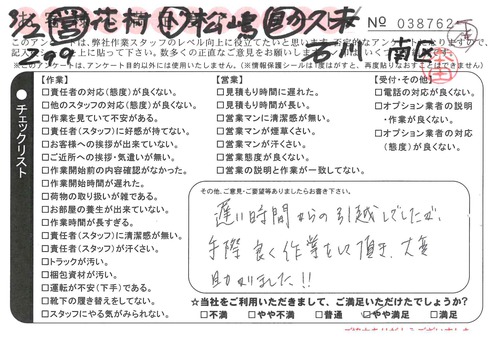 営 花村 松嶋 久末
№ 038762
299 石川 南区
このアンケートは、弊社作業スタッフのレベル向上に役立てたいと思います。
※このアンケートは、アンケート目的以外には使用いたしません。(※情報保護シールは1度はがすと、再度貼りなおすことはできません)
●チェックリスト
【作業】
□責任者の対応(態度)が良くない。
□他のスタッフの対応(態度)が良くない。
□作業を見ていて不安がある。
□責任者(スタッフ)に好感が持てない。
□お客様への挨拶が出来ていない。
□ご近所への挨拶・気遣いが無い。
□作業開始前の内容確認がなかった。
□作業開始時間が遅れた。
□荷物の取り扱いが雑である。
□お部屋の養生が出来ていない。
□作業時間が長すぎる。
□責任者(スタッフ)に清潔感が無い。
□責任者(スタッフ)が汗くさい。
□トラックが汚い。
□梱包資材が汚い。
□運転が不安(下手)である。
□靴下の履き替えをしてない。
□スタッフにやる気がみられない。
【営業】
□見積もり時間に遅れた。
□見積もり時間が長い。
□営業マンに清潔感が無い。
□営業マンが煙草くさい。
□営業マンが汗くさい。
□営業態度が良くない。
□営業の説明と作業が一致してない。
【受付・その他】
□電話の対応が良くない。
□オプション業者の説明
・作業が良くない。
□オプション業者の対応
(態度)が良くない。
その他、ご意見・ご要望等ありましたらお書き下さい。
遅い時間からの引越しでしたが、
手際良く作業をして頂き、大変
助かりました!!
☆当社をご利用いただきまして、ご満足いただけたでしょうか?
□不満 □やや不満 □普通 □やや満足 □満足
ご協力ありがとうございました